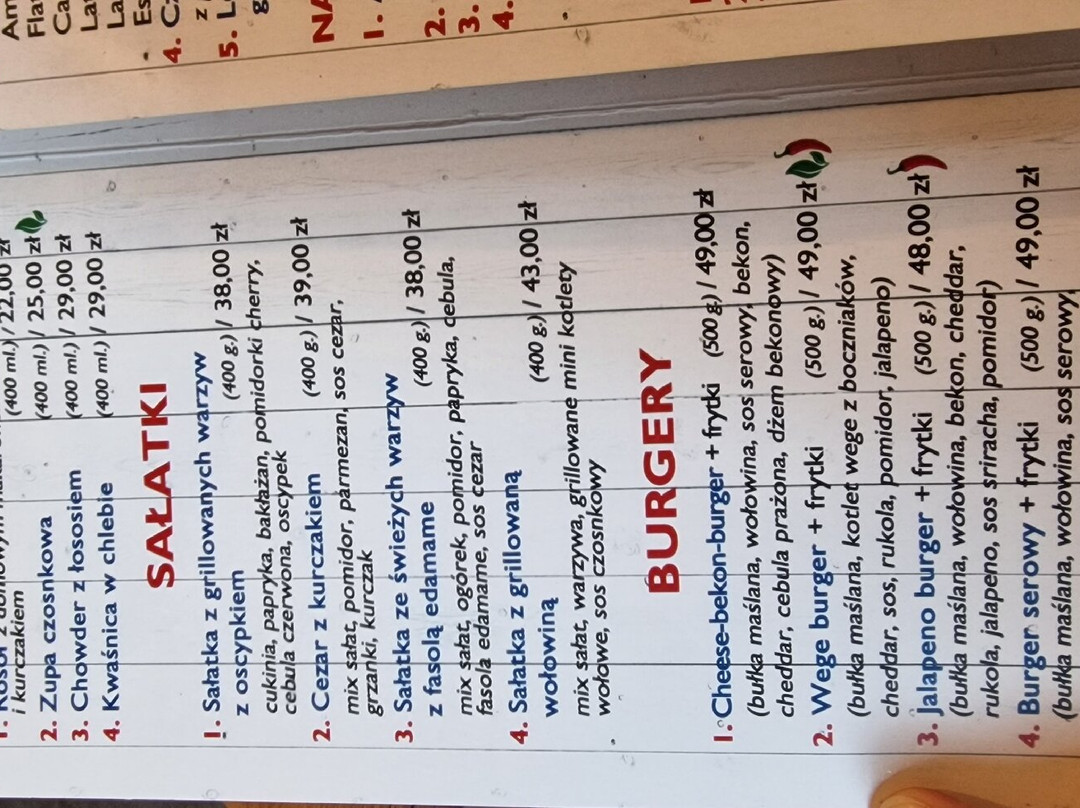 4.
5.
1.
2.
3.
4.
(400 ml.) / 22,00 zł
i kurczakiem
2. Zupa czosnkowa (400 ml.) / 25,00 zł
3. Chowder z łososiem (400 ml.) / 29,00 zł
4. Kwaśnica w chlebie (400 ml.) / 29,00 zł
SAŁATKI
1. Sałatka z grillowanych warzyw
z oscypkiem (400 g.) / 38,00 zł
cukinia, papryka, bakłażan, pomidorki cherry,
cebula czerwona, oscypek
2. Cezar z kurczakiem (400 g.) / 39,00 zł
mix sałat, pomidor, parmezan, sos cezar,
grzanki, kurczak
3. Sałatka ze świeżych warzyw
z fasolą edamame (400 g.) / 38,00 zł
mix sałat, ogórek, pomidor, papryka, cebula,
fasola edamame, sos cezar
4. Sałatka z grillowaną
wołowiną (400 g.) / 43,00 zł
mix sałat, warzywa, grillowane mini kotlety
wołowe, sos czosnkowy
BURGERY
1. Cheese-bekon-burger + frytki (500 g.) / 49,00 zł
(bułka maślana, wołowina, sos serowy, bekon,
cheddar, cebula prażona, dżem bekonowy)
2. Wege burger + frytki (500 g.) / 49,00 zł
(bułka maślana, kotlet wege z boczniaków,
cheddar, sos, rukola, pomidor, jalapeno)
3. Jalapeno burger + frytki (500 g.) / 48,00 zł
(bułka maślana, wołowina, bekon, cheddar,
rukola, jalapeno, sos sriracha, pomidor)
4. Burger serowy + frytki (500 g.) / 49,00 zł
(bułka maślana, wołowina, sos serowy,